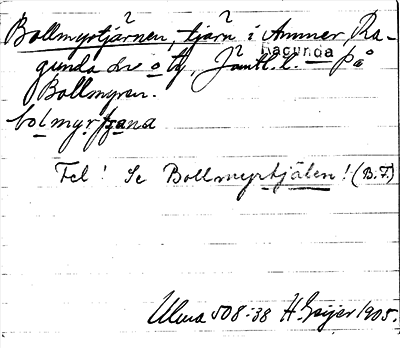 Bollmyrtjärnen, tjärn i Ammer, Ra-
Ragunda
gunda sn o tg, Jämtl. l. — på
Bollmyren.
Fel! Se Bollmyrtjälen! (B.F.)
Ulma 508:38 H Geijer 1905.